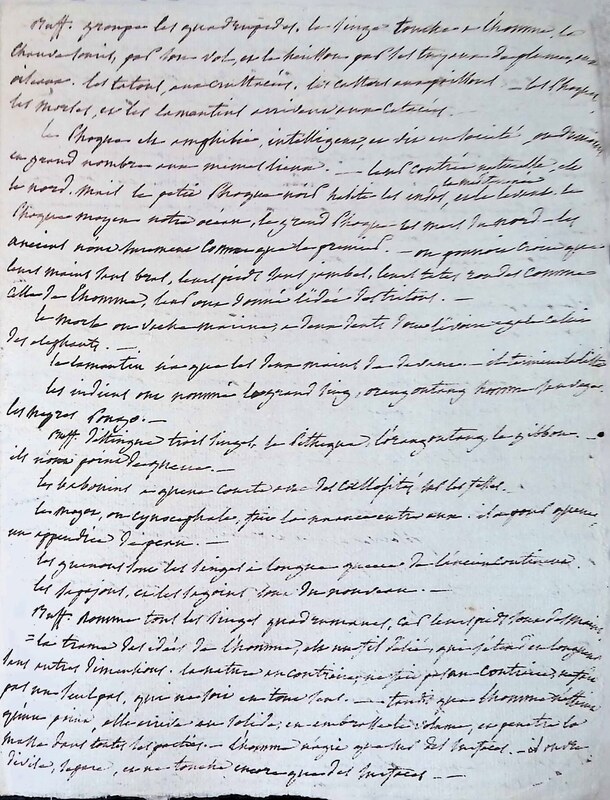 Buff. groupe les quadrupèdes. le singe touche a l'homme, la
chauvesouris, par son vol, et le hérisson par les tuyaux de plumes, aux
oiseaux. les tatous, aux crustacées. les castors aux poissons — les phoques
les morses, et les lamantins arrivent aux cétacées.
le Phoque est amphibie, intelligent, et vit en société
en grand nombre aux mêmes lieux. — leur contrée naturelle, est
le nord. mais le petit Phoque noir habite les indes, la méditerranée et le levant. le
Phoque moyen notre océan, le grand Phoque les mers du nord — les
anciens nous que le premier. — on pourroit croire que
leurs mains sans bras, leurs pieds sans jambes, leurs têtes rondes comme
celle de l'homme, leur ont donné l'idée des tritons. —
le morse ou vache marine, a deux dents, dont l'ivoire égale celui
des elephants. —
le lamantin n'a que les deux mains de devant. — et
les indiens ont nommé le grand singe, orangoutang homme sauvage.
les negres Pongo. —
Buff. distingue trois singes, le Pitheque, l'orangoutang, le gibbon. —
ils n'ont point de queue. —
les babouins a queue courte avec des callosités sur les fesses.
le magot, ou cynocephale, fait la nuance entre eux. — il a pour queue,
un appendice de peau. —
les guenons sont les singes a longue queue de l'ancien continent.
les sapajous, et les sagoins sont du nouveau. —
Buff. nomme tous les singes quadrumanes, car leurs pieds sont des mains,
= la trame des idées de l'homme, est un fil délié, qui s'étend en longueur
sans autres dimensions. la nature au contraire, ne fait
pas un seul pas, qui ne soit en tout sens. — tandis que l'homme
qu'un point, elle le solide, en et pénètre la
masse dans toutes les parties. — l'homme n'agit que sur des surfaces. — il ouvre
divise, sépare, et ne touche encore que des surfaces. —